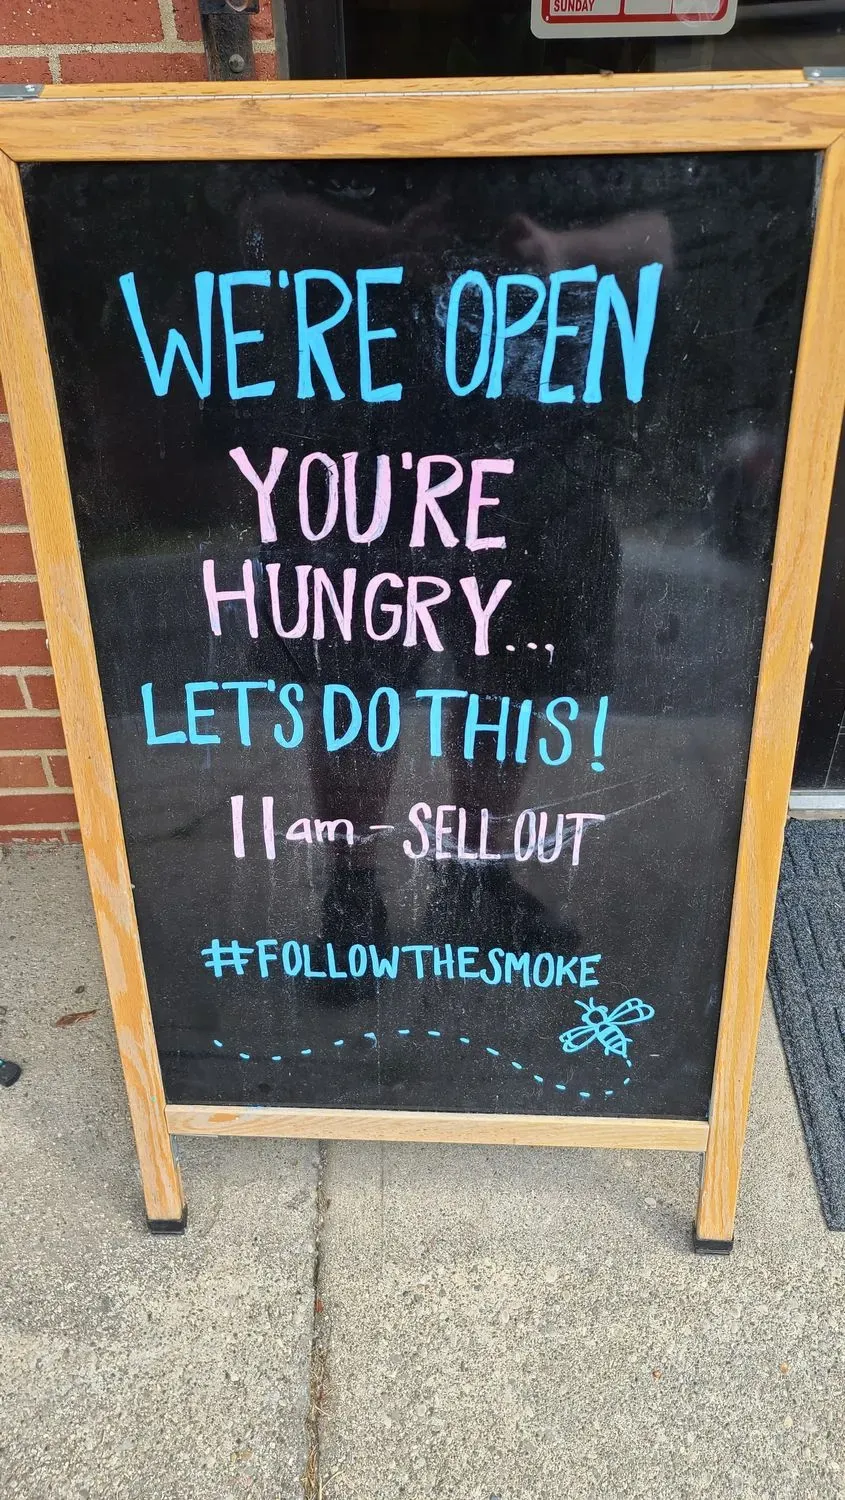 SUNDAY
WE'RE OPEN
YOU'RE
HUNGRY...
LET'S DO THIS!
11am - SELL OUT
#FOLLOWTHESMOKE